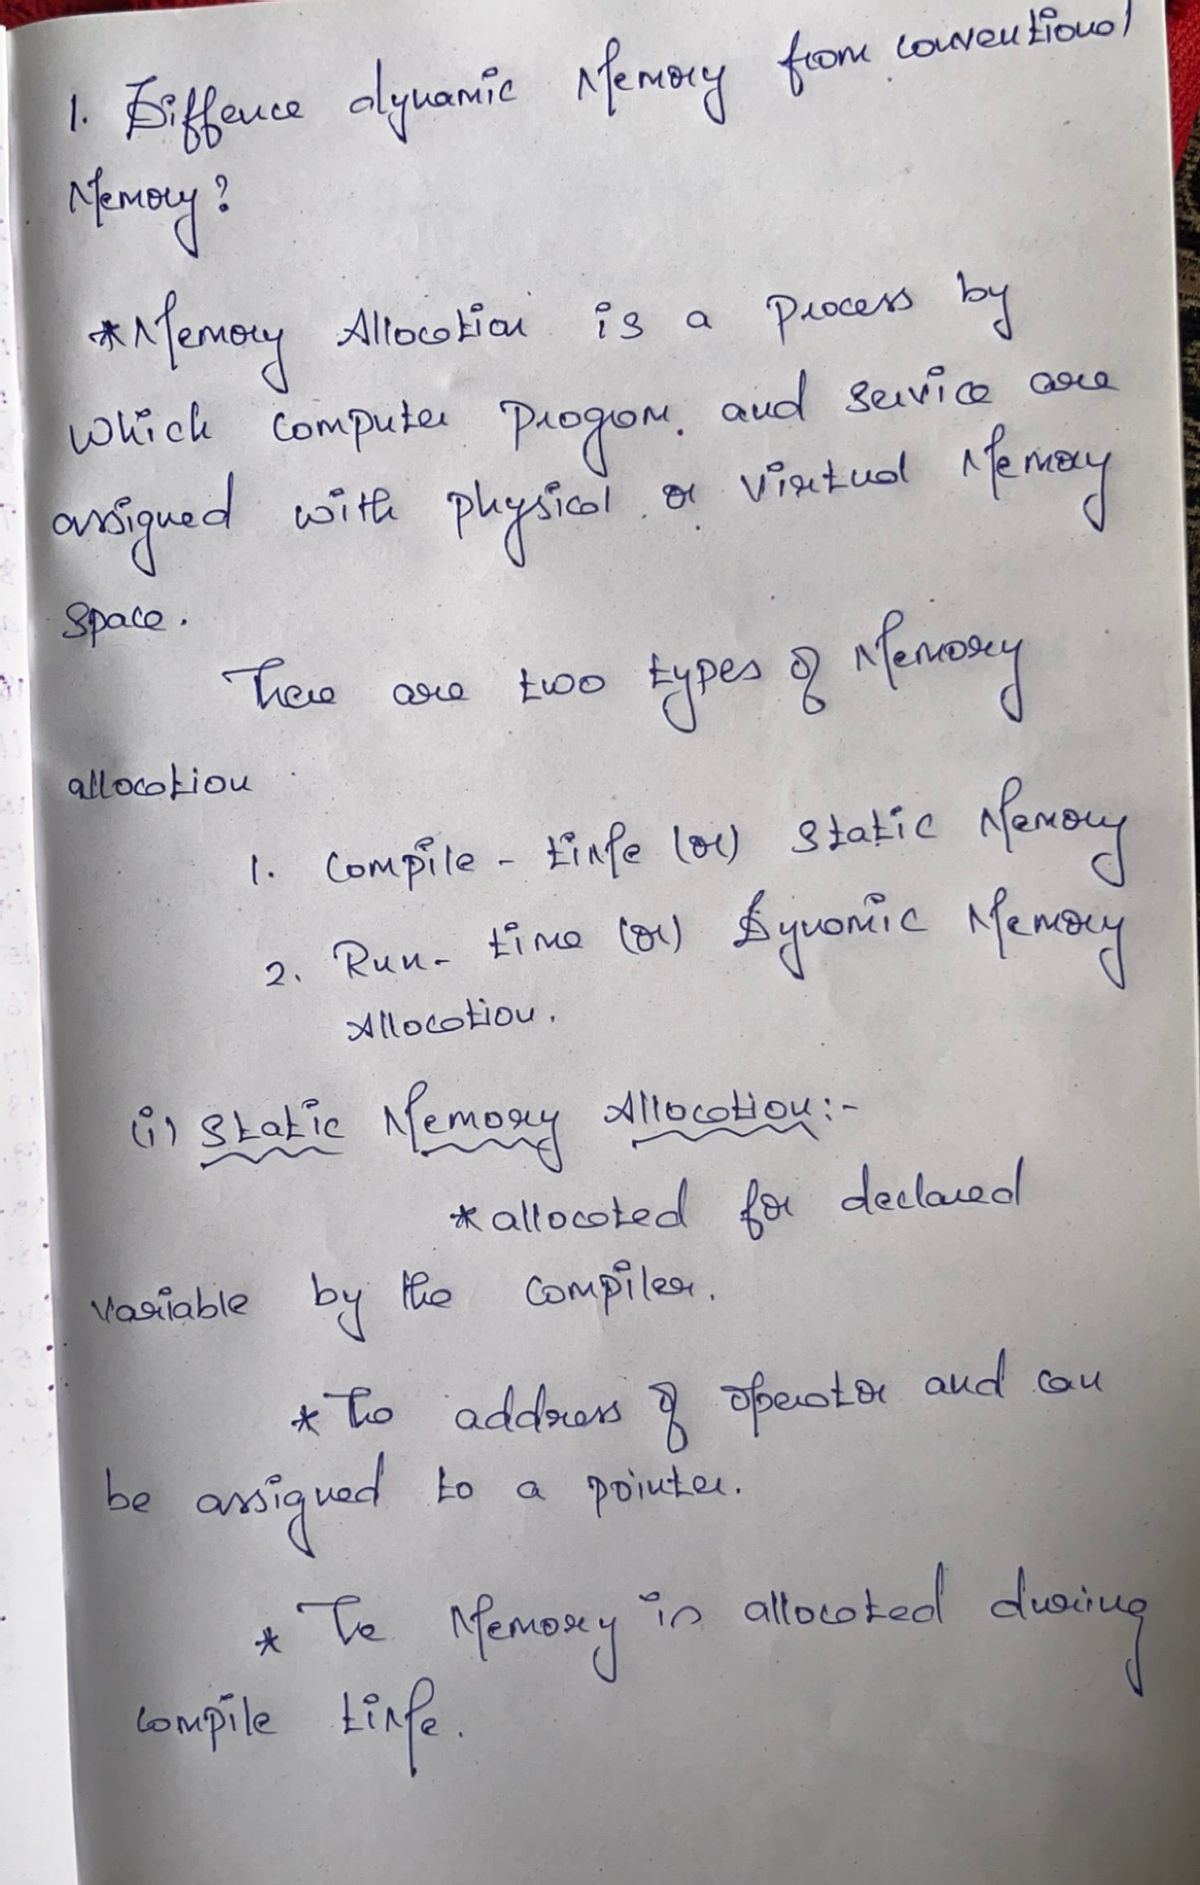 1. Diffence dynamic Memory from conventional
Memory?
*Memory Allocation is a process by
which computer Program. and service are
assigned with physical or virtual Memory
space.
There are two types of Memory
allocation
1. Compile - time (or) Static Memory
2. Run- time (or) Dynamic Memory
Allocation.
(i) Static Memory Allocation:-
*allocated for declared
variable by the compiler.
* The address of operator and can
be assigned to a pointer.
* Te Memory is allocated during
compile time.